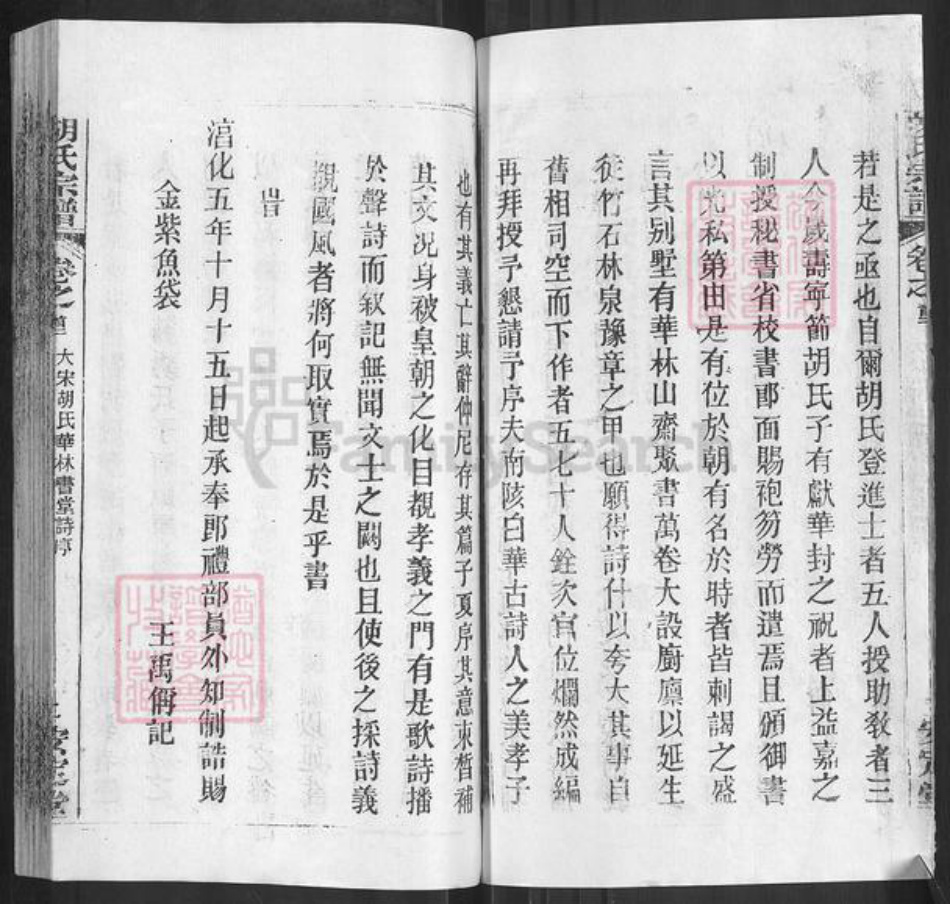 若是之亟也自爾胡氏登進士者五人授助敎者三
人今歲壽寧節胡氏子有獻華封之祝者上益嘉之
制授秘書省校書郎面賜袍笏勞而遣焉且頒御書
以光私第由是有位於朝有名於時者皆刺謁之盛
言其别墅有華林山齋聚書萬卷大設廚廪以延生
徒竹石林泉豫章之甲也願得詩什以夸大其事自
舊相司空而下作者五七十人銓次官位爛然成編
再拜授予懇請予序夫南陔白華古詩人之美孝子
也有其義亡其辭仲尼存其篇子夏序其意束晳補
其文况身被皇朝之化目覩孝義之門有是歌詩播
於聲詩而叙記無聞文士之闕也且使後之採詩義
觀國風者將何取實焉於是乎書
旹
淳化五年十月十五日起承奉郎禮部員外知制誥賜
金紫魚袋
王禹偁記
胡氏宗譜
卷之一
大宋胡氏華林書堂詩序
安定堂
FamilySearch